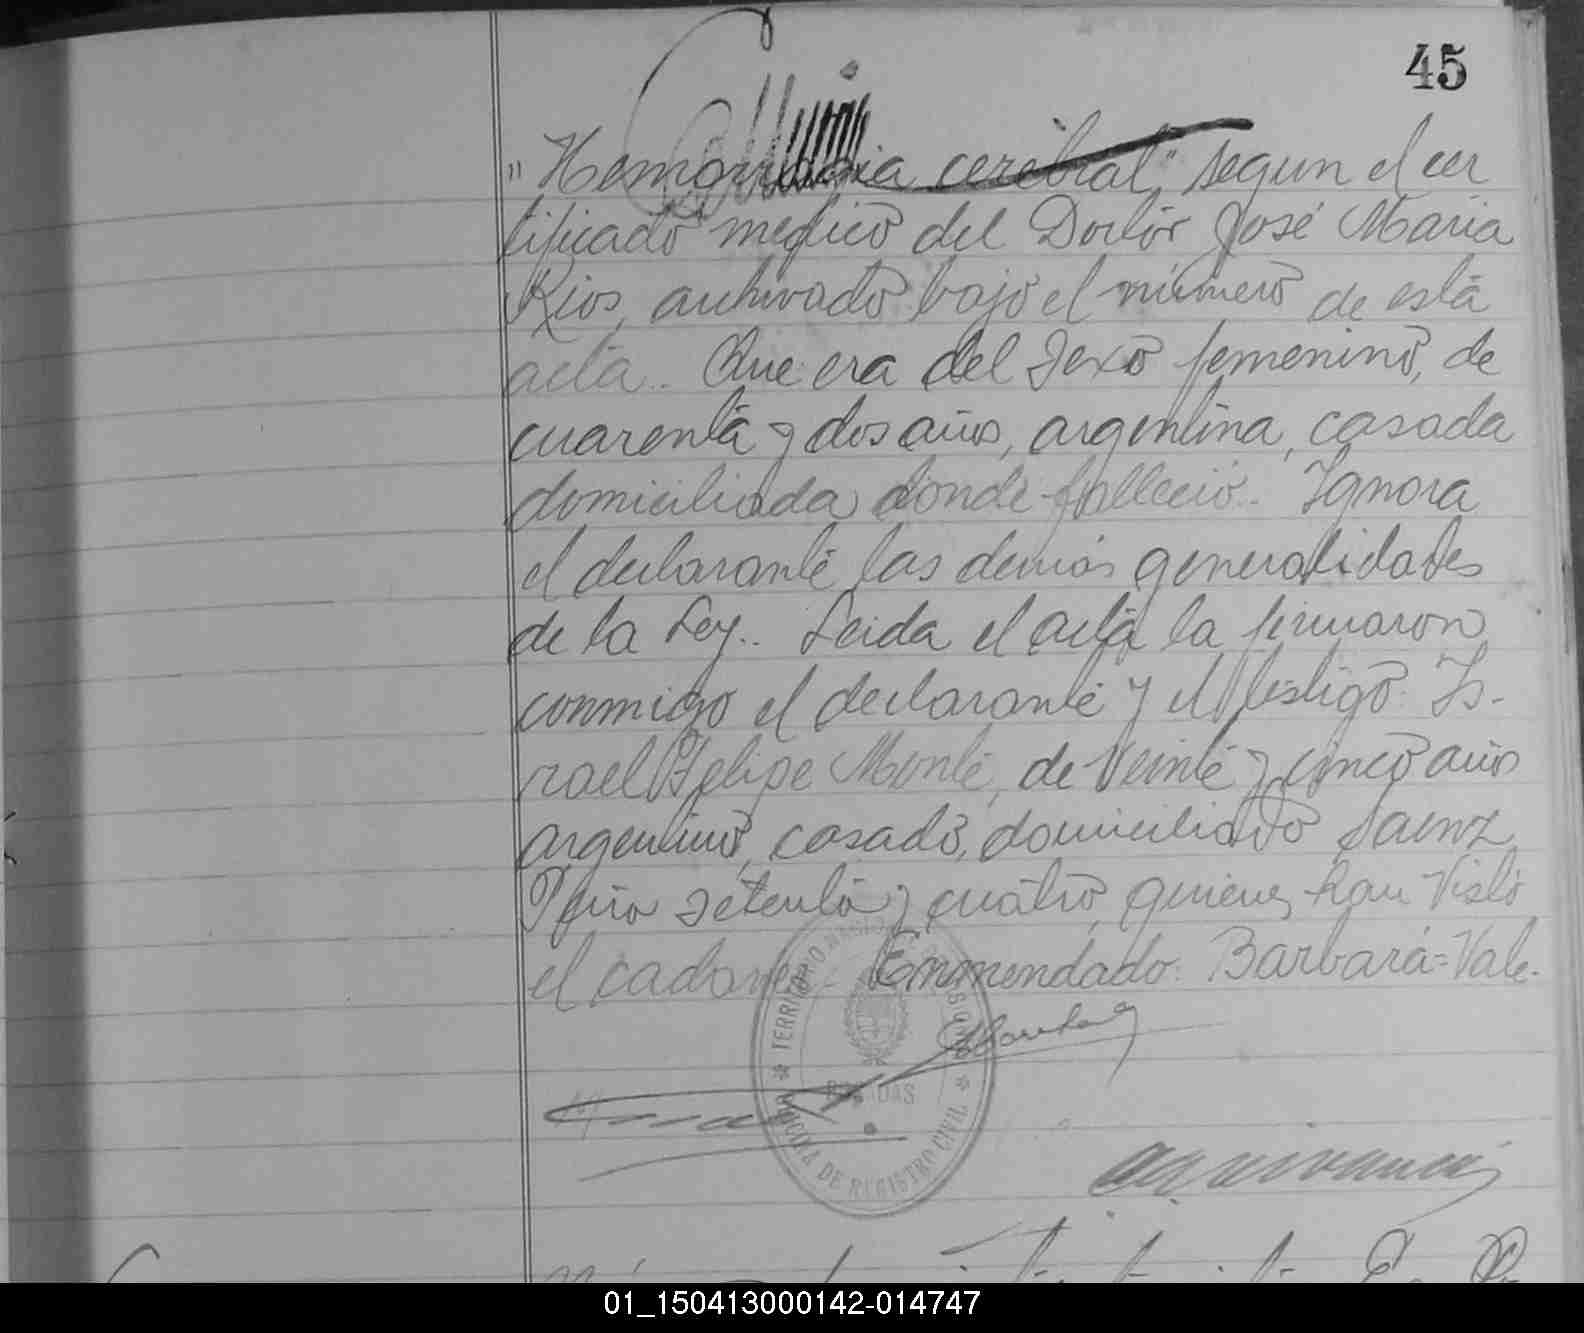 45
"Hemorragia cerebral," segun el cer
tificado medico del Doctor José Maria
Rios, archivado bajo el número de esta
acta.. Que era del Sexo femenino, de
cuarenta y dos años, argentina, casada
domiciliada donde falleció.. Ignora
el declarante las demás generalidades
de la Ley.. Leida el acta la firmaron
conmigo el declarante y el testigo: Is-
rael Felipe Monte, de Veinte y cinco años
argentino, casado, domiciliado Saenz
Peña setenta y cuatro, quienes han Visto
el cadaver.. Enmendado: Barbará=Vale.
TERRITORIO NACIONAL DE MISIONES
POSADAS
OFICINA DE REGISTRO CIVIL
01_150413000142-014747